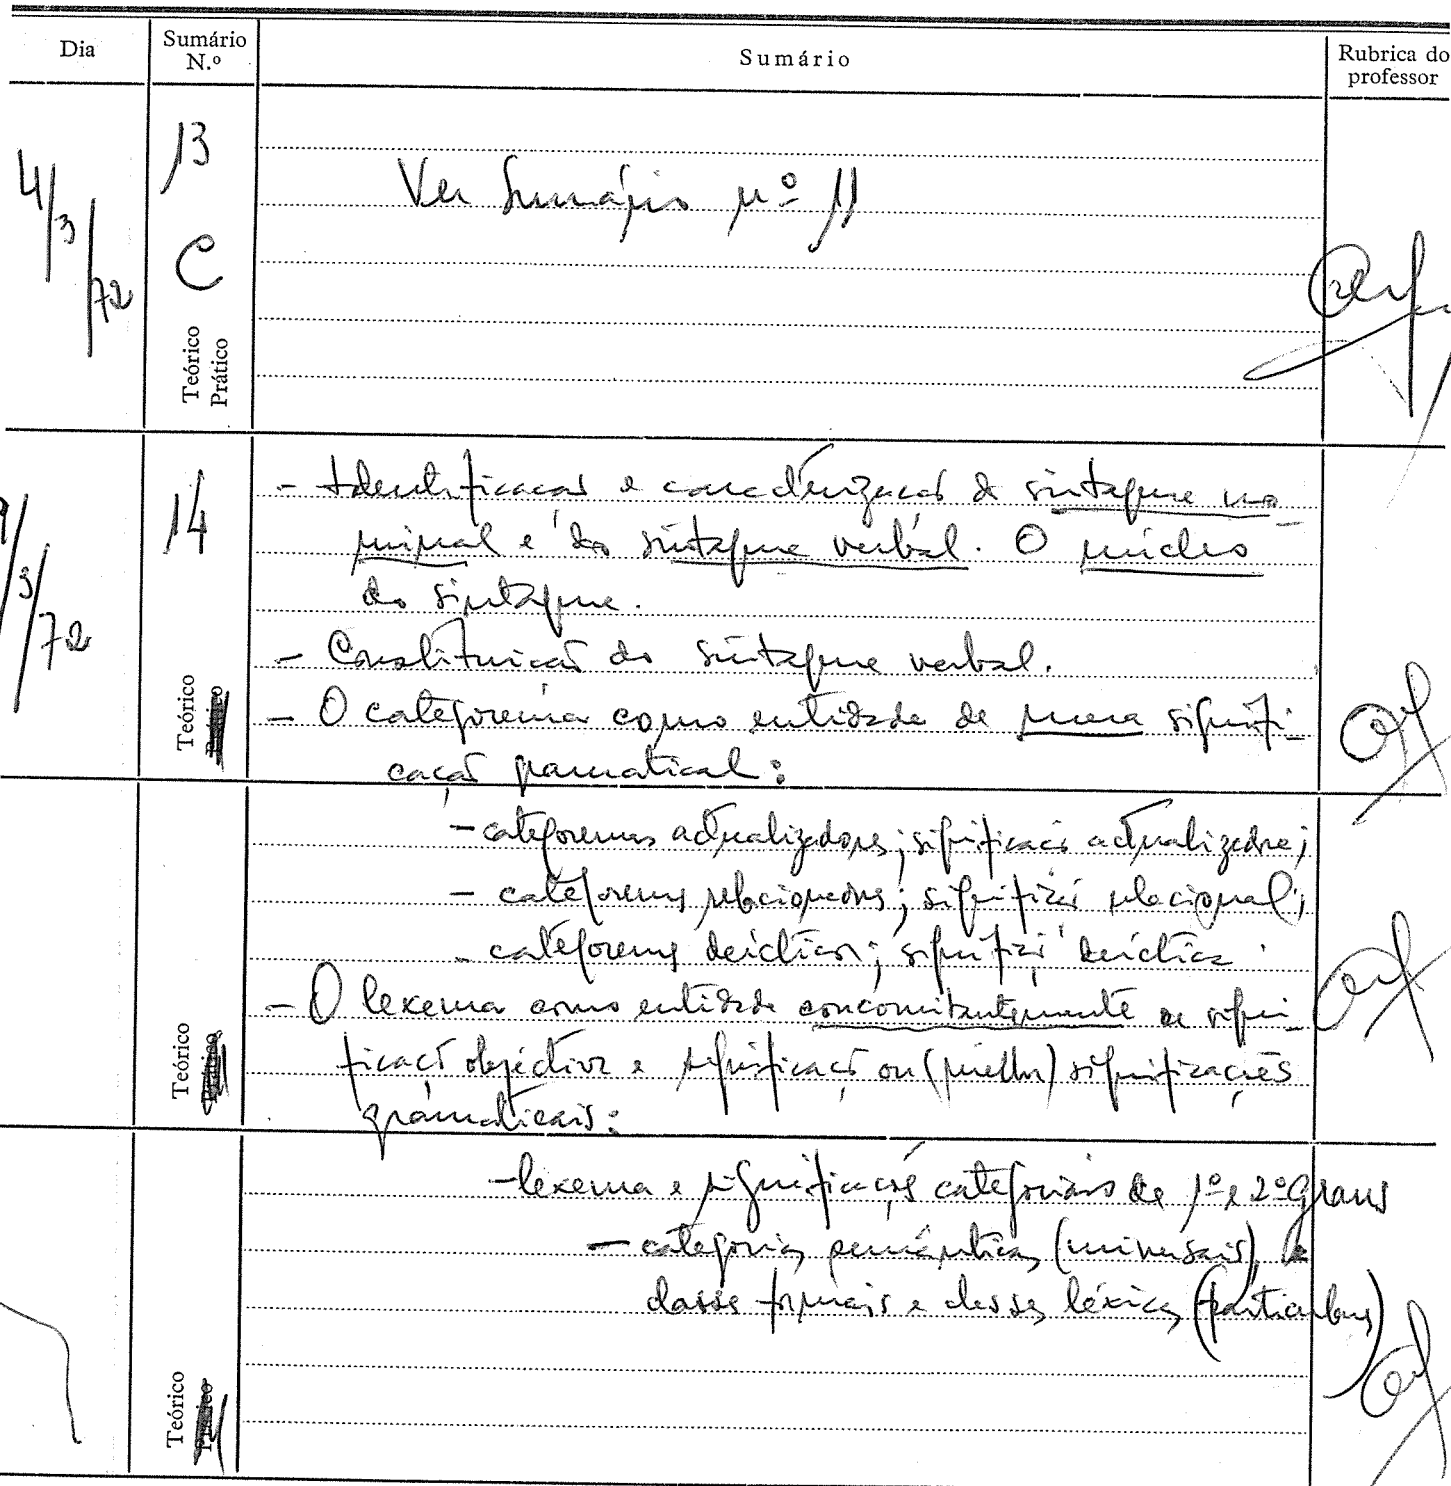 Dia
Sumário N.º
Sumário
Rubrica do professor
4/3/72
13
C
Teórico
Prático
Ver Sumário nº 11
/3/72
14
Teórico
- Identificação e caracterização do sintagma no-
minal e do sintagma verbal. O núcleo
do sintagma.
- Constituição do sintagma verbal.
- O categorema como entidade de mera signifi-
cação gramatical:
- categoremas actualizadores; significação actualizadora;
- categoremas relacionadores; significação relacional;
- categoremas deícticos; significação deíctica.
Teórico
- O lexema como entidade concomitantemente de signi-
ficação objectiva e significação ou (melhor) significações
gramaticais:
- lexema e significações categoriais de 1º e 2º Graus
- categorias semânticas (universais) e
classes formais e classes léxicas (particulares)
Teórico